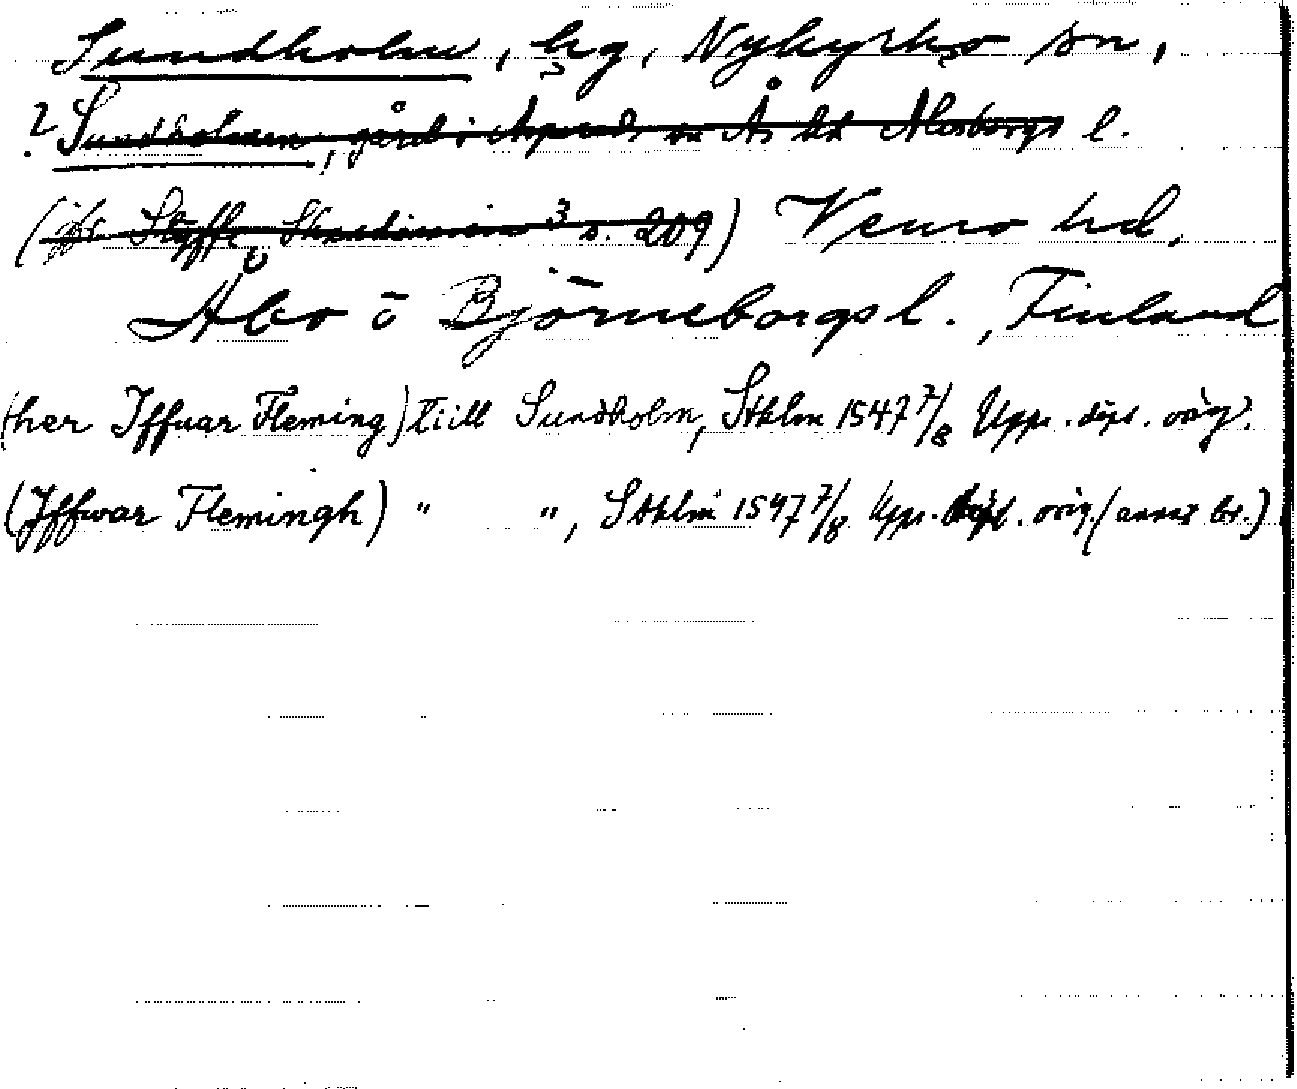 Sundholm, hg, Nykyrko sn,
? Sundholmen, gård i Aspered sn Ås hd Älvsborgs l.
(jfr Styffe, Skandinavien 3 s. 209) Vemo hd,
Åbo o Björneborgs l., Finland
(her Iffuar Fleming) tiill Sundholm, Sthlm 1547 7/8 Upps. dipl. orig.
(Iffwar Flemingh) " ", Sthlm 1547 7/8 Upps. dipl. orig. (annat br.)